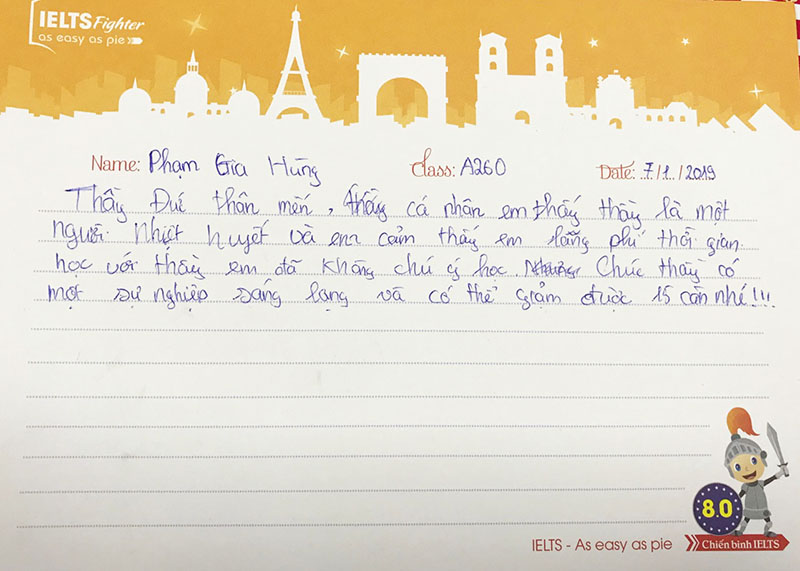 IELTS Fighter
as easy as pie
Name: Phạm Gia Hùng Class: A260 Date: 7/1/2019
Thầy Đức thân mến, thấy cá nhân em thấy thầy là một
người nhiệt huyết và em cảm thấy em lãng phí thời gian
học với thầy em đã không chú ý học. Chúc thầy có
một sự nghiệp sáng lạng và có thể giảm được 15 cân nhé!!!
8.0
IELTS - As easy as pie Chiến binh IELTS